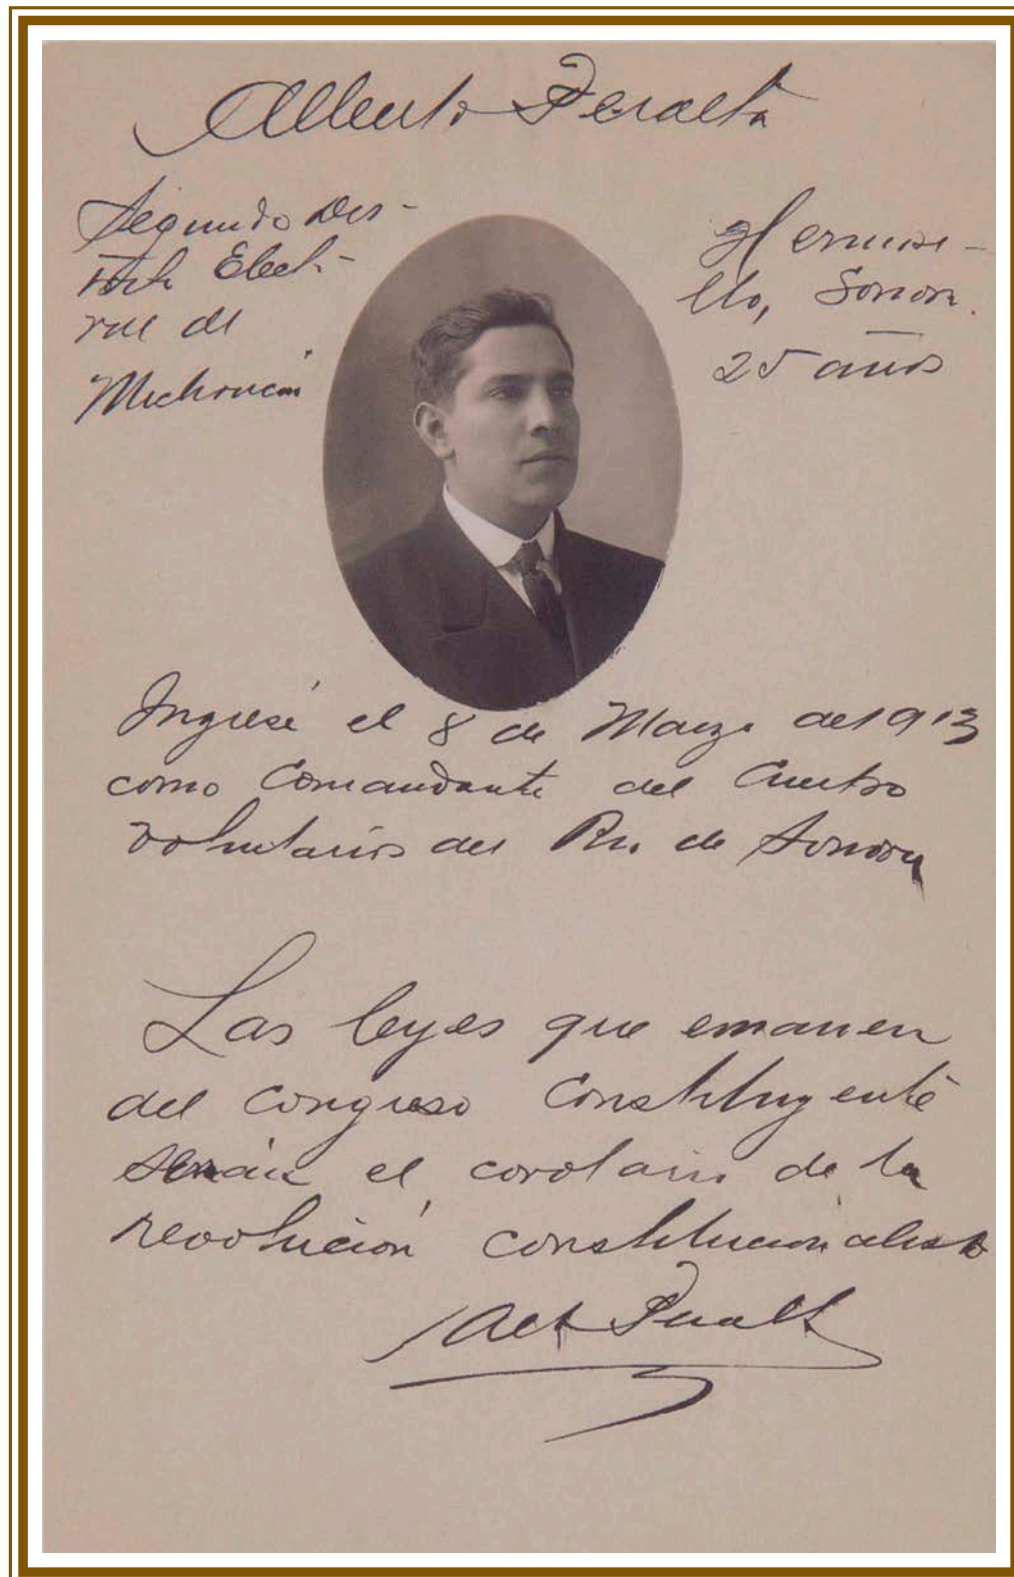 Alberto Peralta
Segundo Dis-
trito Elect-
ral de
Michoacán
Hermosi-
llo, Sonora.
25 años
Ingresé el 8 de Marzo de 1913
como Comandante del Cuerpo
voluntarios del Río de Sonora
Las leyes que emanen
del Congreso Constituyente
serán el corolario de la
revolución constitucionalista
Alb Peralta